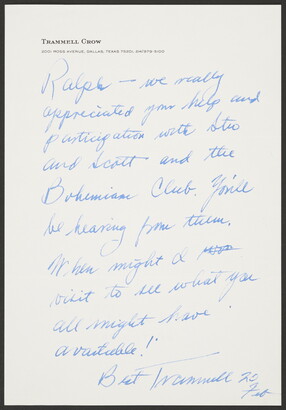 TRAMMELL CROW
2001 ROSS AVENUE, DALLAS, TEXAS 75201, 214/979-5100
Ralph — we really
appreciated your help and
participation with Stu
and Scott and the
Bohemian Club. You'll
be hearing from them.
When might I
visit to see what you
all might have
available!
Best Trammell 20
Feb